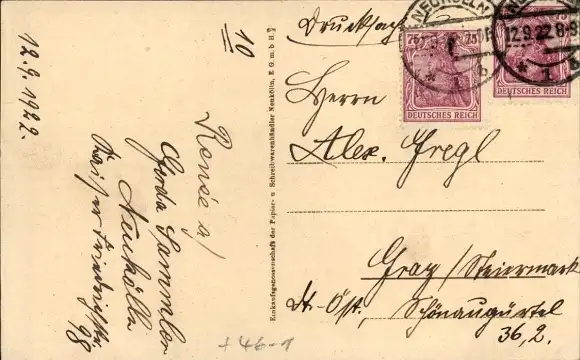 12.9.1922.
10
Renée a/
Gerda Sammler
Neukölln
98
Einkaufsgenossenschaft der Papier- u. Schreibwarenhändler Neukölln, E. G. m. b. H.
Drucksache
NEUKÖLLN
12.9.22.8-9
* 1 b
* 1
75 75
DEUTSCHES REICH
DEUTSCHES REICH
Herrn
Alex. Gregl
Graz/Steiermark
Dt-Öst. Schönaugürtel
36,2.